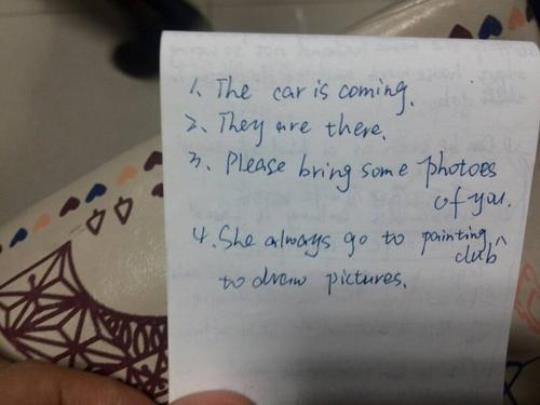 1. The car is coming.
2. They are there.
3. Please bring some photoes
of you.
4. She always go to painting ^
club
to draw pictures.